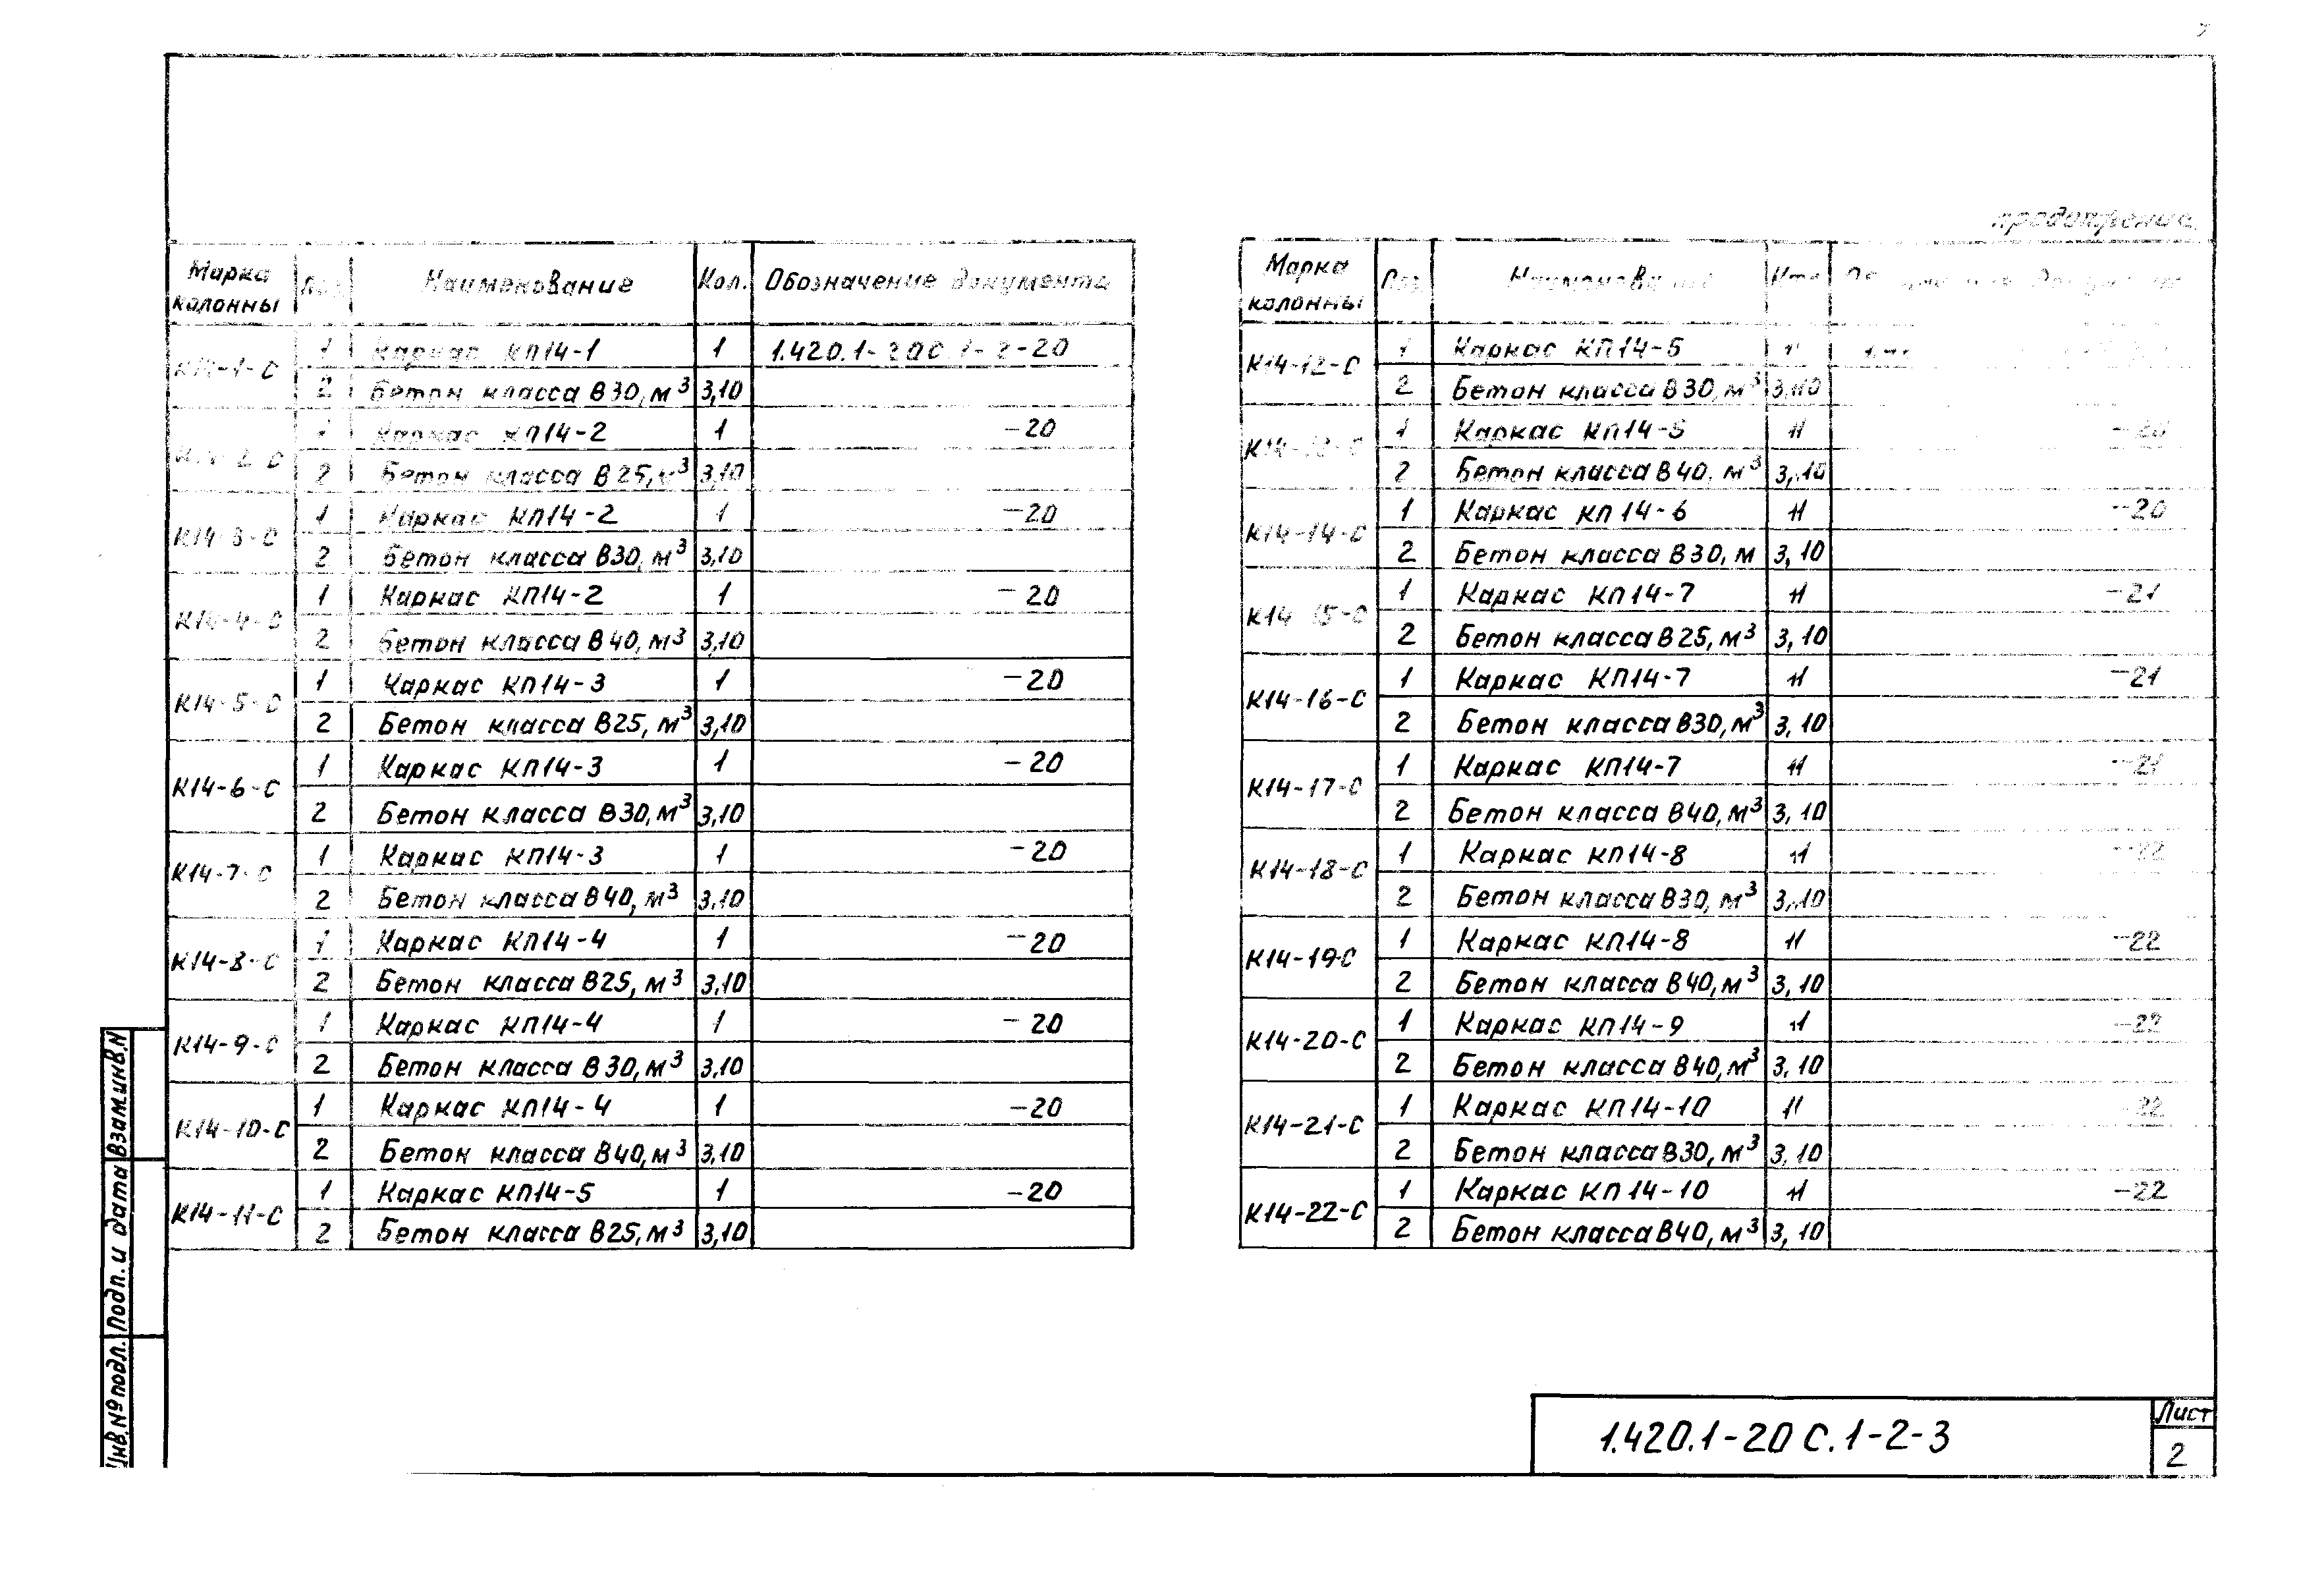 продолжение
Марка колонны Поз. Наименование Кол. Обозначение документа
1 Каркас КП14-1 1 1.420.1-20С.1-2-20
К14-1-С
2 Бетон класса В30, м³ 3,10
1 Каркас КП14-2 1 -20
2 Бетон класса В25, м³ 3,10
1 Каркас КП14-2 1 -20
К14-3-С
2 Бетон класса В30, м³ 3,10
1 Каркас КП14-2 1 -20
К14-4-С
2 Бетон класса В40, м³ 3,10
1 Каркас КП14-3 1 -20
К14-5-С
2 Бетон класса В25, м³ 3,10
1 Каркас КП14-3 1 -20
К14-6-С
2 Бетон класса В30, м³ 3,10
1 Каркас КП14-3 1 -20
К14-7-С
2 Бетон класса В40, м³ 3,10
1 Каркас КП14-4 1 -20
К14-8-С
2 Бетон класса В25, м³ 3,10
1 Каркас КП14-4 1 -20
К14-9-С
2 Бетон класса В30, м³ 3,10
1 Каркас КП14-4 1 -20
К14-10-С
2 Бетон класса В40, м³ 3,10
1 Каркас КП14-5 1 -20
К14-11-С
2 Бетон класса В25, м³ 3,10
Марка колонны Поз. Наименование
1 Каркас КП14-5 1
К14-12-С
2 Бетон класса В30, м³ 3,10
1 Каркас КП14-5 1 -20
К14-13-С
2 Бетон класса В40, м³ 3,10
1 Каркас КП14-6 1 -20
К14-14-С
2 Бетон класса В30, м 3,10
1 Каркас КП14-7 1 -21
К14-15-С
2 Бетон класса В25, м³ 3,10
1 Каркас КП14-7 1 -21
К14-16-С
2 Бетон класса В30, м³ 3,10
1 Каркас КП14-7 1 -21
К14-17-С
2 Бетон класса В40, м³ 3,10
1 Каркас КП14-8 1 -22
К14-18-С
2 Бетон класса В30, м³ 3,10
1 Каркас КП14-8 1 -22
К14-19С
2 Бетон класса В40, м³ 3,10
1 Каркас КП14-9 1 -22
К14-20-С
2 Бетон класса В40, м³ 3,10
1 Каркас КП14-10 1 -22
К14-21-С
2 Бетон класса В30, м³ 3,10
1 Каркас КП14-10 1 -22
К14-22-С
2 Бетон класса В40, м³ 3,10
Инв.№подл. Подп. и дата Взам.инв.N
1.420.1-20С.1-2-3
Лист
2